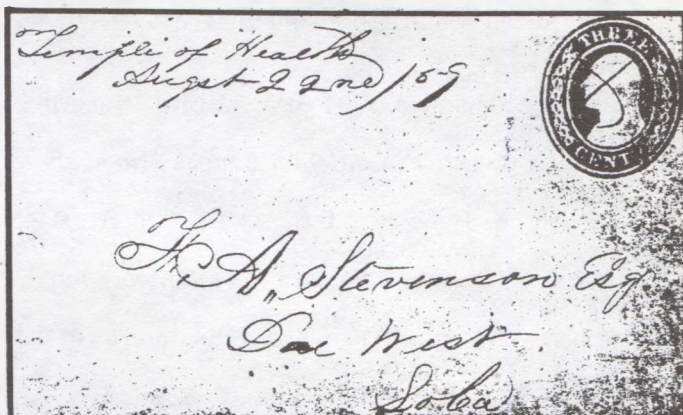 Temple of Health
Augst 22nd /59
THREE
CENTS
A, Stevenson Esq
Due West.
So Ca